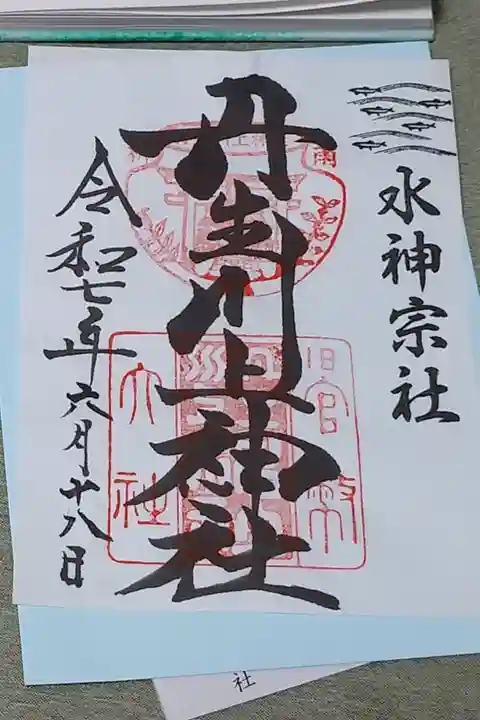 水神宗社
丹生川上神社
旧官幣
大社
令和七年六月十八日
社